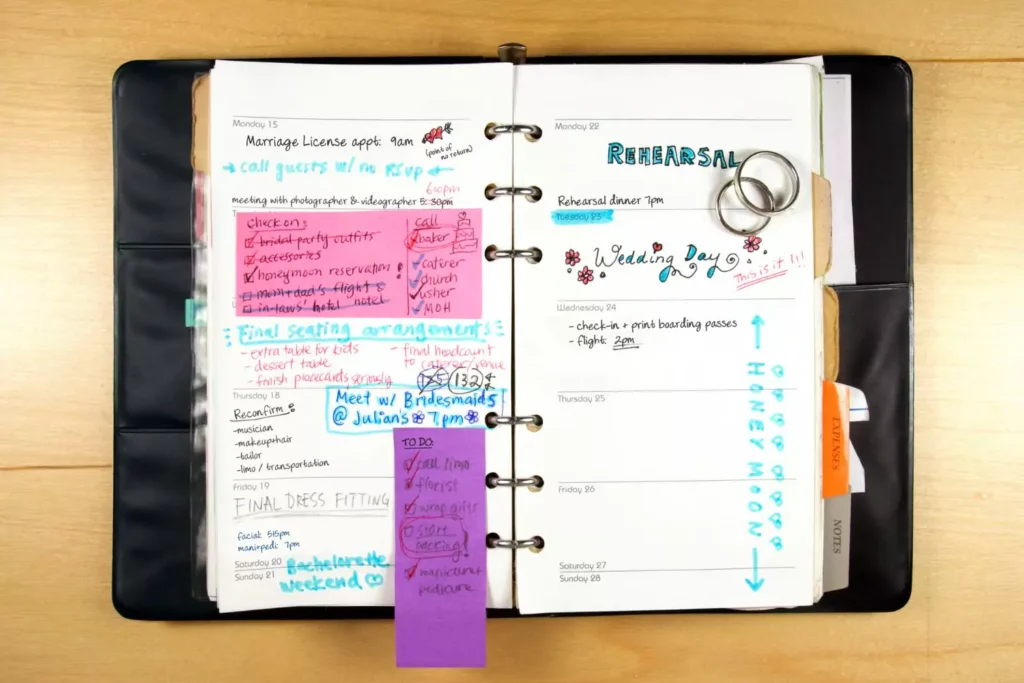 Monday 15
Marriage License appt: 9am
(point of
no return)
→ call guests w/ no RSVP ←
6:00pm
meeting with photographer & videographer 5:30pm
check on:
bridal party outfits
accessories
honeymoon reservation!
mom+dad's flight &
in-laws' hotel
call
baker
caterer
church
usher
MOH
Final seating arrangements
- extra table for kids
- dessert table
- finish placecards seriously
- final headcount
to caterer/venue
125 132
Meet w/ Bridesmaids
@ Julian's 7pm
Thursday 18
Reconfirm:
-musician
-makeup+hair
-tailor
-limo / transportation
Friday 19
FINAL DRESS FITTING
facial: 515pm
mani+pedi: 7pm
Saturday 20
Sunday 21
Bachelorette
weekend
TO DO:
call limo
florist
wrap gifts
start
packing!
manicure+
pedicure
Monday 22
REHEARSAL
Rehearsal dinner 7pm
Tuesday 23
Wedding Day
This is it!!!
Wednesday 24
- check-in + print boarding passes
- flight: 2pm
Thursday 25
Friday 26
Saturday 27
Sunday 28
← HONEY MOON →
EXPENSES
NOTES